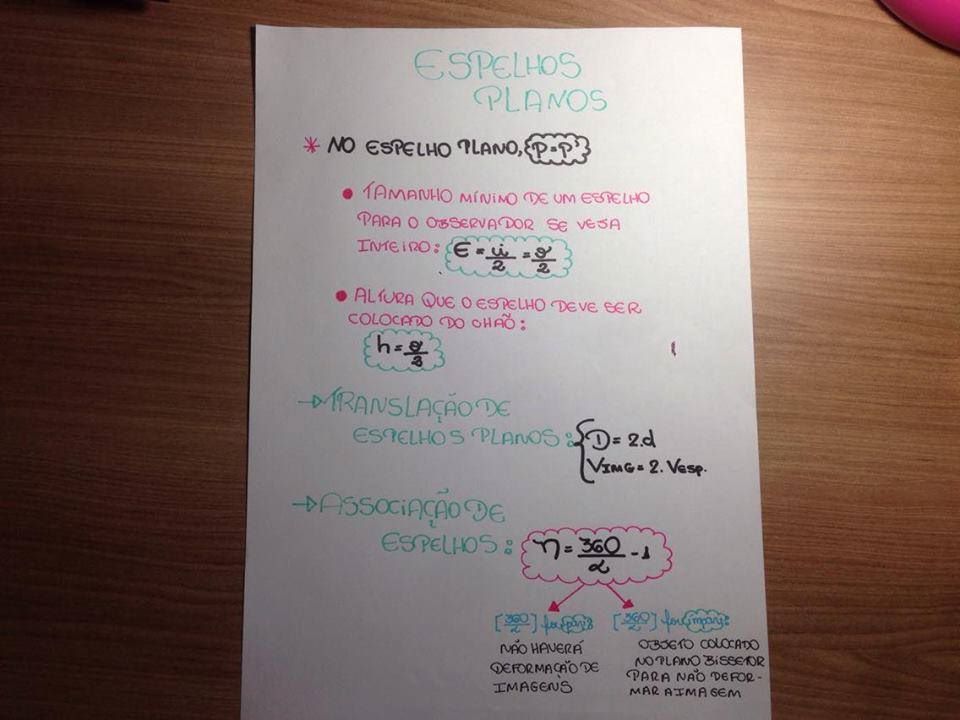 ESPELHOS
PLANOS
* NO ESPELHO PLANO, P=P'
• TAMANHO MÍNIMO DE UM ESPELHO
PARA O OBSERVADOR SE VEJA
INTEIRO: E = ii/2 = o/2
• ALTURA QUE O ESPELHO DEVE SER
COLOCADO DO CHÃO:
h = o/2
→ TRANSLAÇÃO DE
ESPELHOS PLANOS: { D = 2.d
VIMG = 2. Vesp.
→ ASSOCIAÇÃO DE
ESPELHOS: n = 360/α - 1
[360/2] for par: [360/2] for ímpar:
NÃO HAVERÁ
DEFORMAÇÃO DE
IMAGENS
OBJETO COLOCADO
NO PLANO BISSETOR
PARA NÃO DEFOR-
MAR A IMAGEM